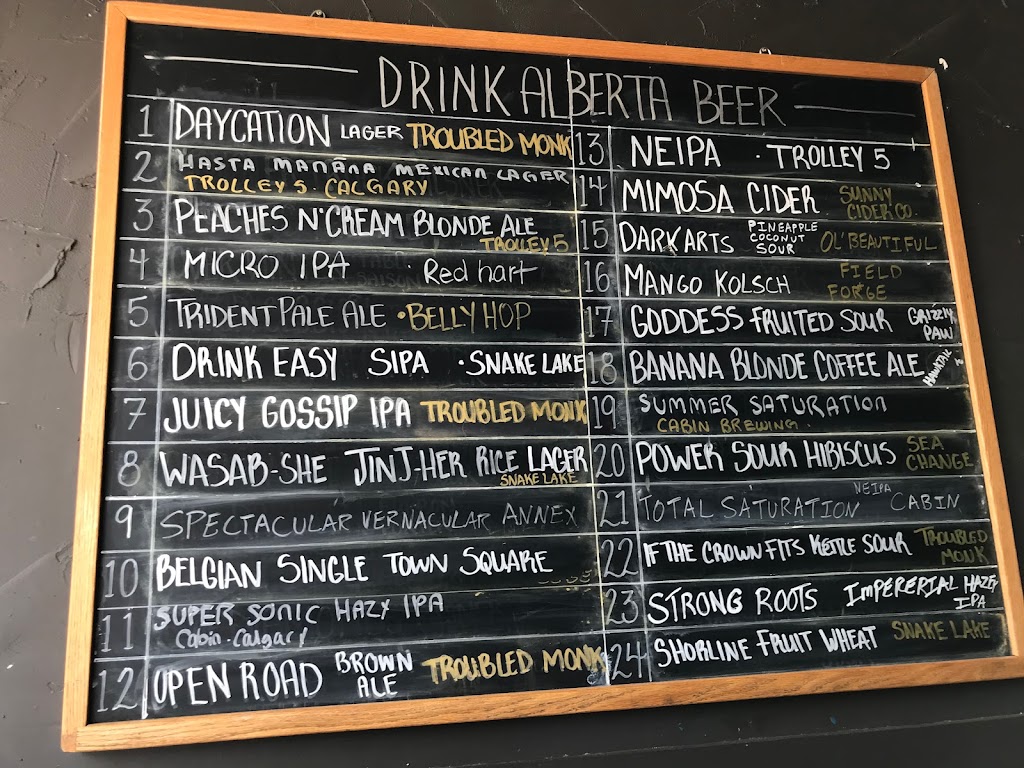 DRINK ALBERTA BEER
1 DAYCATION LAGER TROUBLED MONK
2 HASTA MAÑANA MEXICAN LAGER
TROLLEY 5 · CALGARY
3 PEACHES N' CREAM BLONDE ALE
TROLLEY 5
4 MICRO IPA · Red hart
5 TRIDENT PALE ALE · BELLY HOP
6 DRINK EASY SIPA · SNAKE LAKE
7 JUICY GOSSIP IPA TROUBLED MONK
8 WASAB-SHE JINJ-HER RICE LAGER
SNAKE LAKE
9 SPECTACULAR VERNACULAR ANNEX
10 BELGIAN SINGLE TOWN SQUARE
11 SUPER SONIC HAZY IPA
Cabin - Calgary
12 OPEN ROAD BROWN
ALE TROUBLED MONK
13 NEIPA · TROLLEY 5
14 MIMOSA CIDER SUNNY
CIDER CO.
15 DARK ARTS PINEAPPLE
COCONUT
SOUR OL' BEAUTIFUL
16 MANGO KOLSCH FIELD
FORGE
17 GODDESS FRUITED SOUR GRIZZLY
PAW
18 BANANA BLONDE COFFEE ALE
19 SUMMER SATURATION
CABIN BREWING.
20 POWER SOUR HIBISCUS SEA
CHANGE
21 TOTAL SATURATION NEIPA CABIN
22 IF THE CROWN FITS KETTLE SOUR TROUBLED
MONK
23 STRONG ROOTS IMPERERIAL HAZEY
IPA
24 SHORLINE FRUIT WHEAT SNAKE LAKE